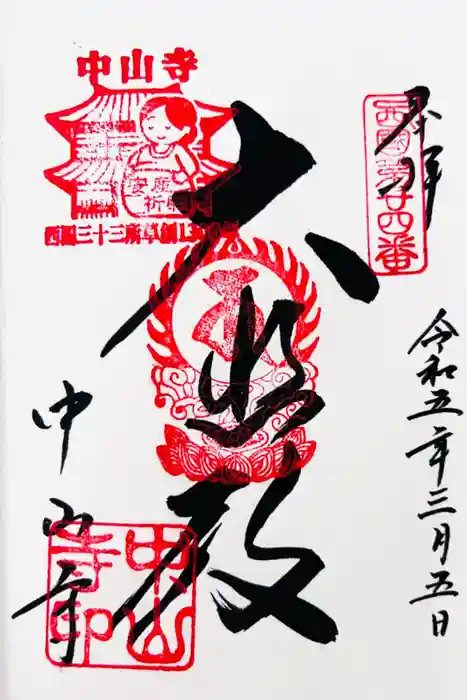 奉拝
西國第廿四番
令和五年三月五日
大悲殿
中山寺
西国三十三所草創1300年
安産
祈願
中山寺
中山寺印